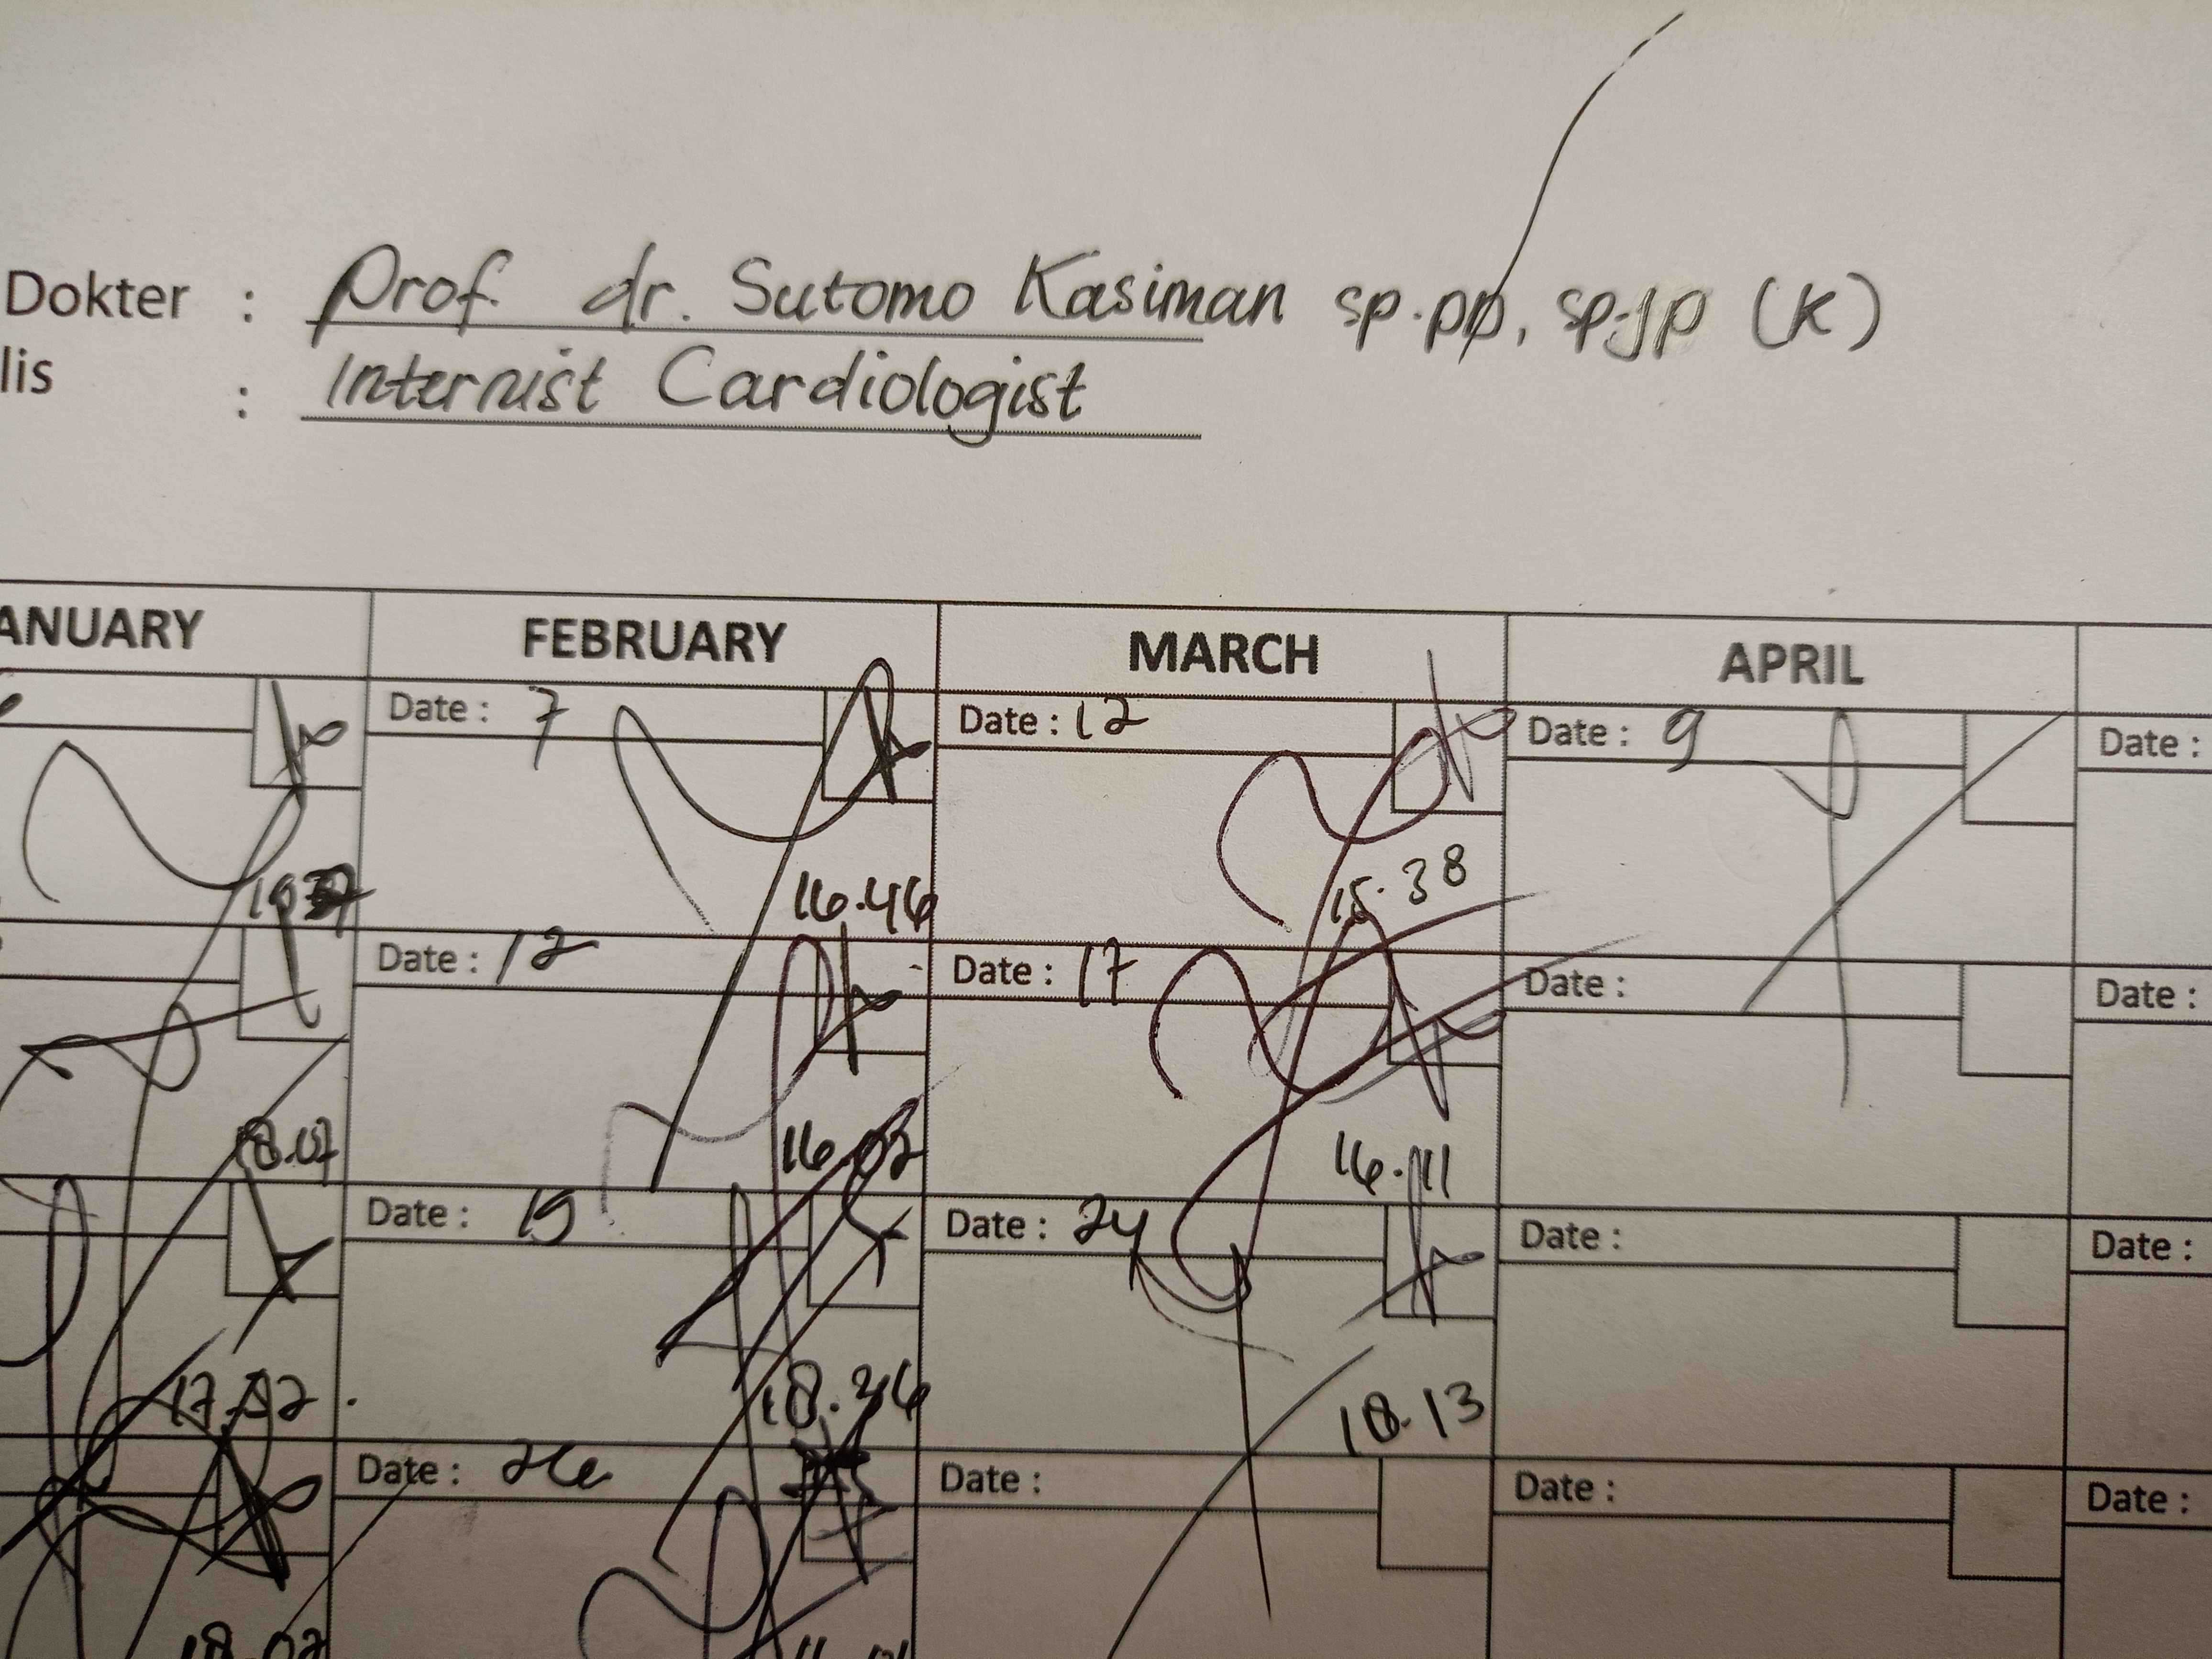 Dokter : Prof. dr. Sutomo Kasiman sp.pp, sp.jp (K)
lis : Internist Cardiologist
ANUARY FEBRUARY MARCH APRIL
Date : 7 Date : 12 Date : 9 Date :
16.46 15.38
Date : 12 Date : 17 Date : Date :
18.07 16.02 16.11
Date : 19 Date : 24 Date : Date :
18.36 18.13
Date : 26 Date : Date : Date :
18.02